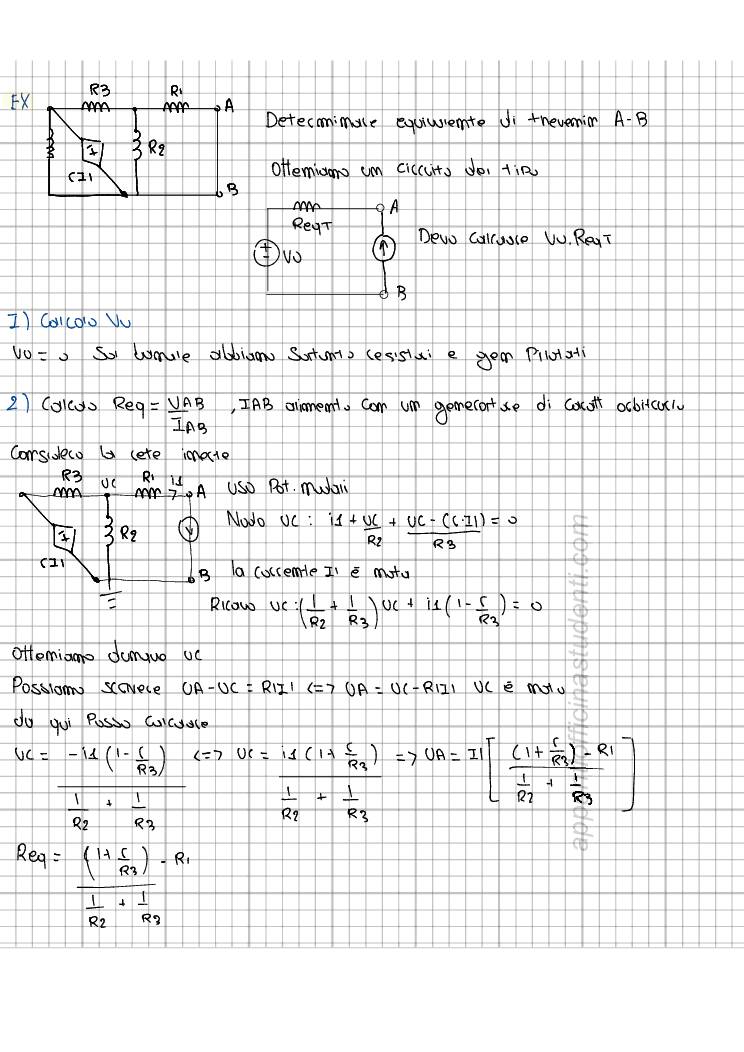 EX
R3 R1 A
I R2
CI1 B
Determinare equivalente di thevenin A-B
Otteniamo un circuito del tipo
ReqT A
V0 B
Devo calcolare V0, ReqT
1) Calcolo V0
V0 = 0 Sul bipolo abbiamo soltanto resistori e gen Pilotati
2) Calcolo Req = VAB / IAB , IAB alimento con un generatore di corrente arbitrario
Considero la rete inerte
R3 UC R1 i1 A
I R2
CI1 B
USO Pot. nodali
Nodo UC : i1 + UC/R2 + (UC - (r·I1))/R3 = 0
la corrente I1 è nota
Ricavo UC : (1/R2 + 1/R3) UC + i1 (1 - r/R3) = 0
Otteniamo dunque UC
Possiamo scrivere UA - UC = R1I1 <=> UA = UC - R1I1 UC è noto
da qui Posso calcolare
UC = -i1 (1 - r/R3) / (1/R2 + 1/R3) <=> UC = i1 (1 + r/R3) / (1/R2 + 1/R3) => UA = I1 [ (1 + r/R3) - R1 / (1/R2 + 1/R3) ]
Req = (1 + r/R3) - R1 / (1/R2 + 1/R3)